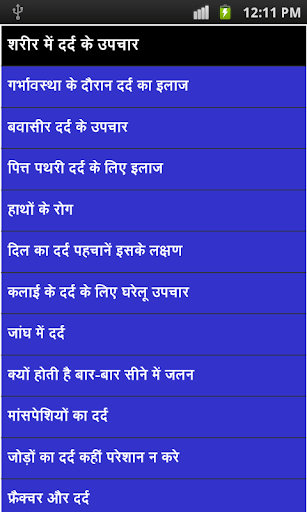 12:11 PM
शरीर में दर्द के उपचार
गर्भावस्था के दौरान दर्द का इलाज
बवासीर दर्द के उपचार
पित्त पथरी दर्द के लिए इलाज
हाथों के रोग
दिल का दर्द पहचानें इसके लक्षण
कलाई के दर्द के लिए घरेलू उपचार
जांघ में दर्द
क्यों होती है बार-बार सीने में जलन
मांसपेशियों का दर्द
जोड़ों का दर्द कहीं परेशान न करे
फ्रैक्चर और दर्द